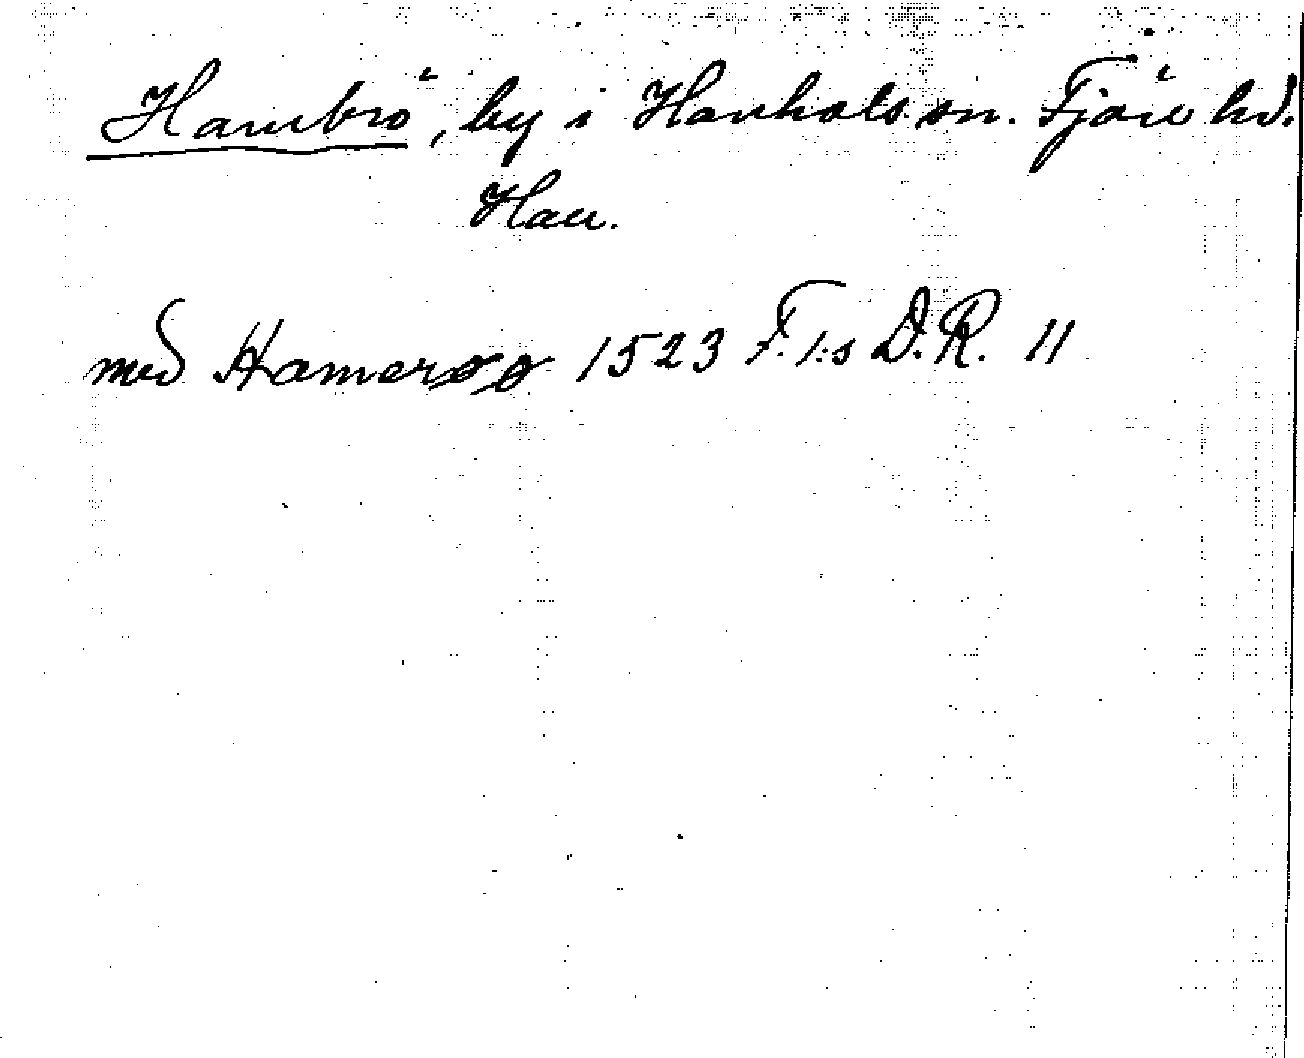 Hambrö, by i Hanhals sn. Fjäre hd.
Hall.
med Hamerøø 1523 F. I:s D.R. 11